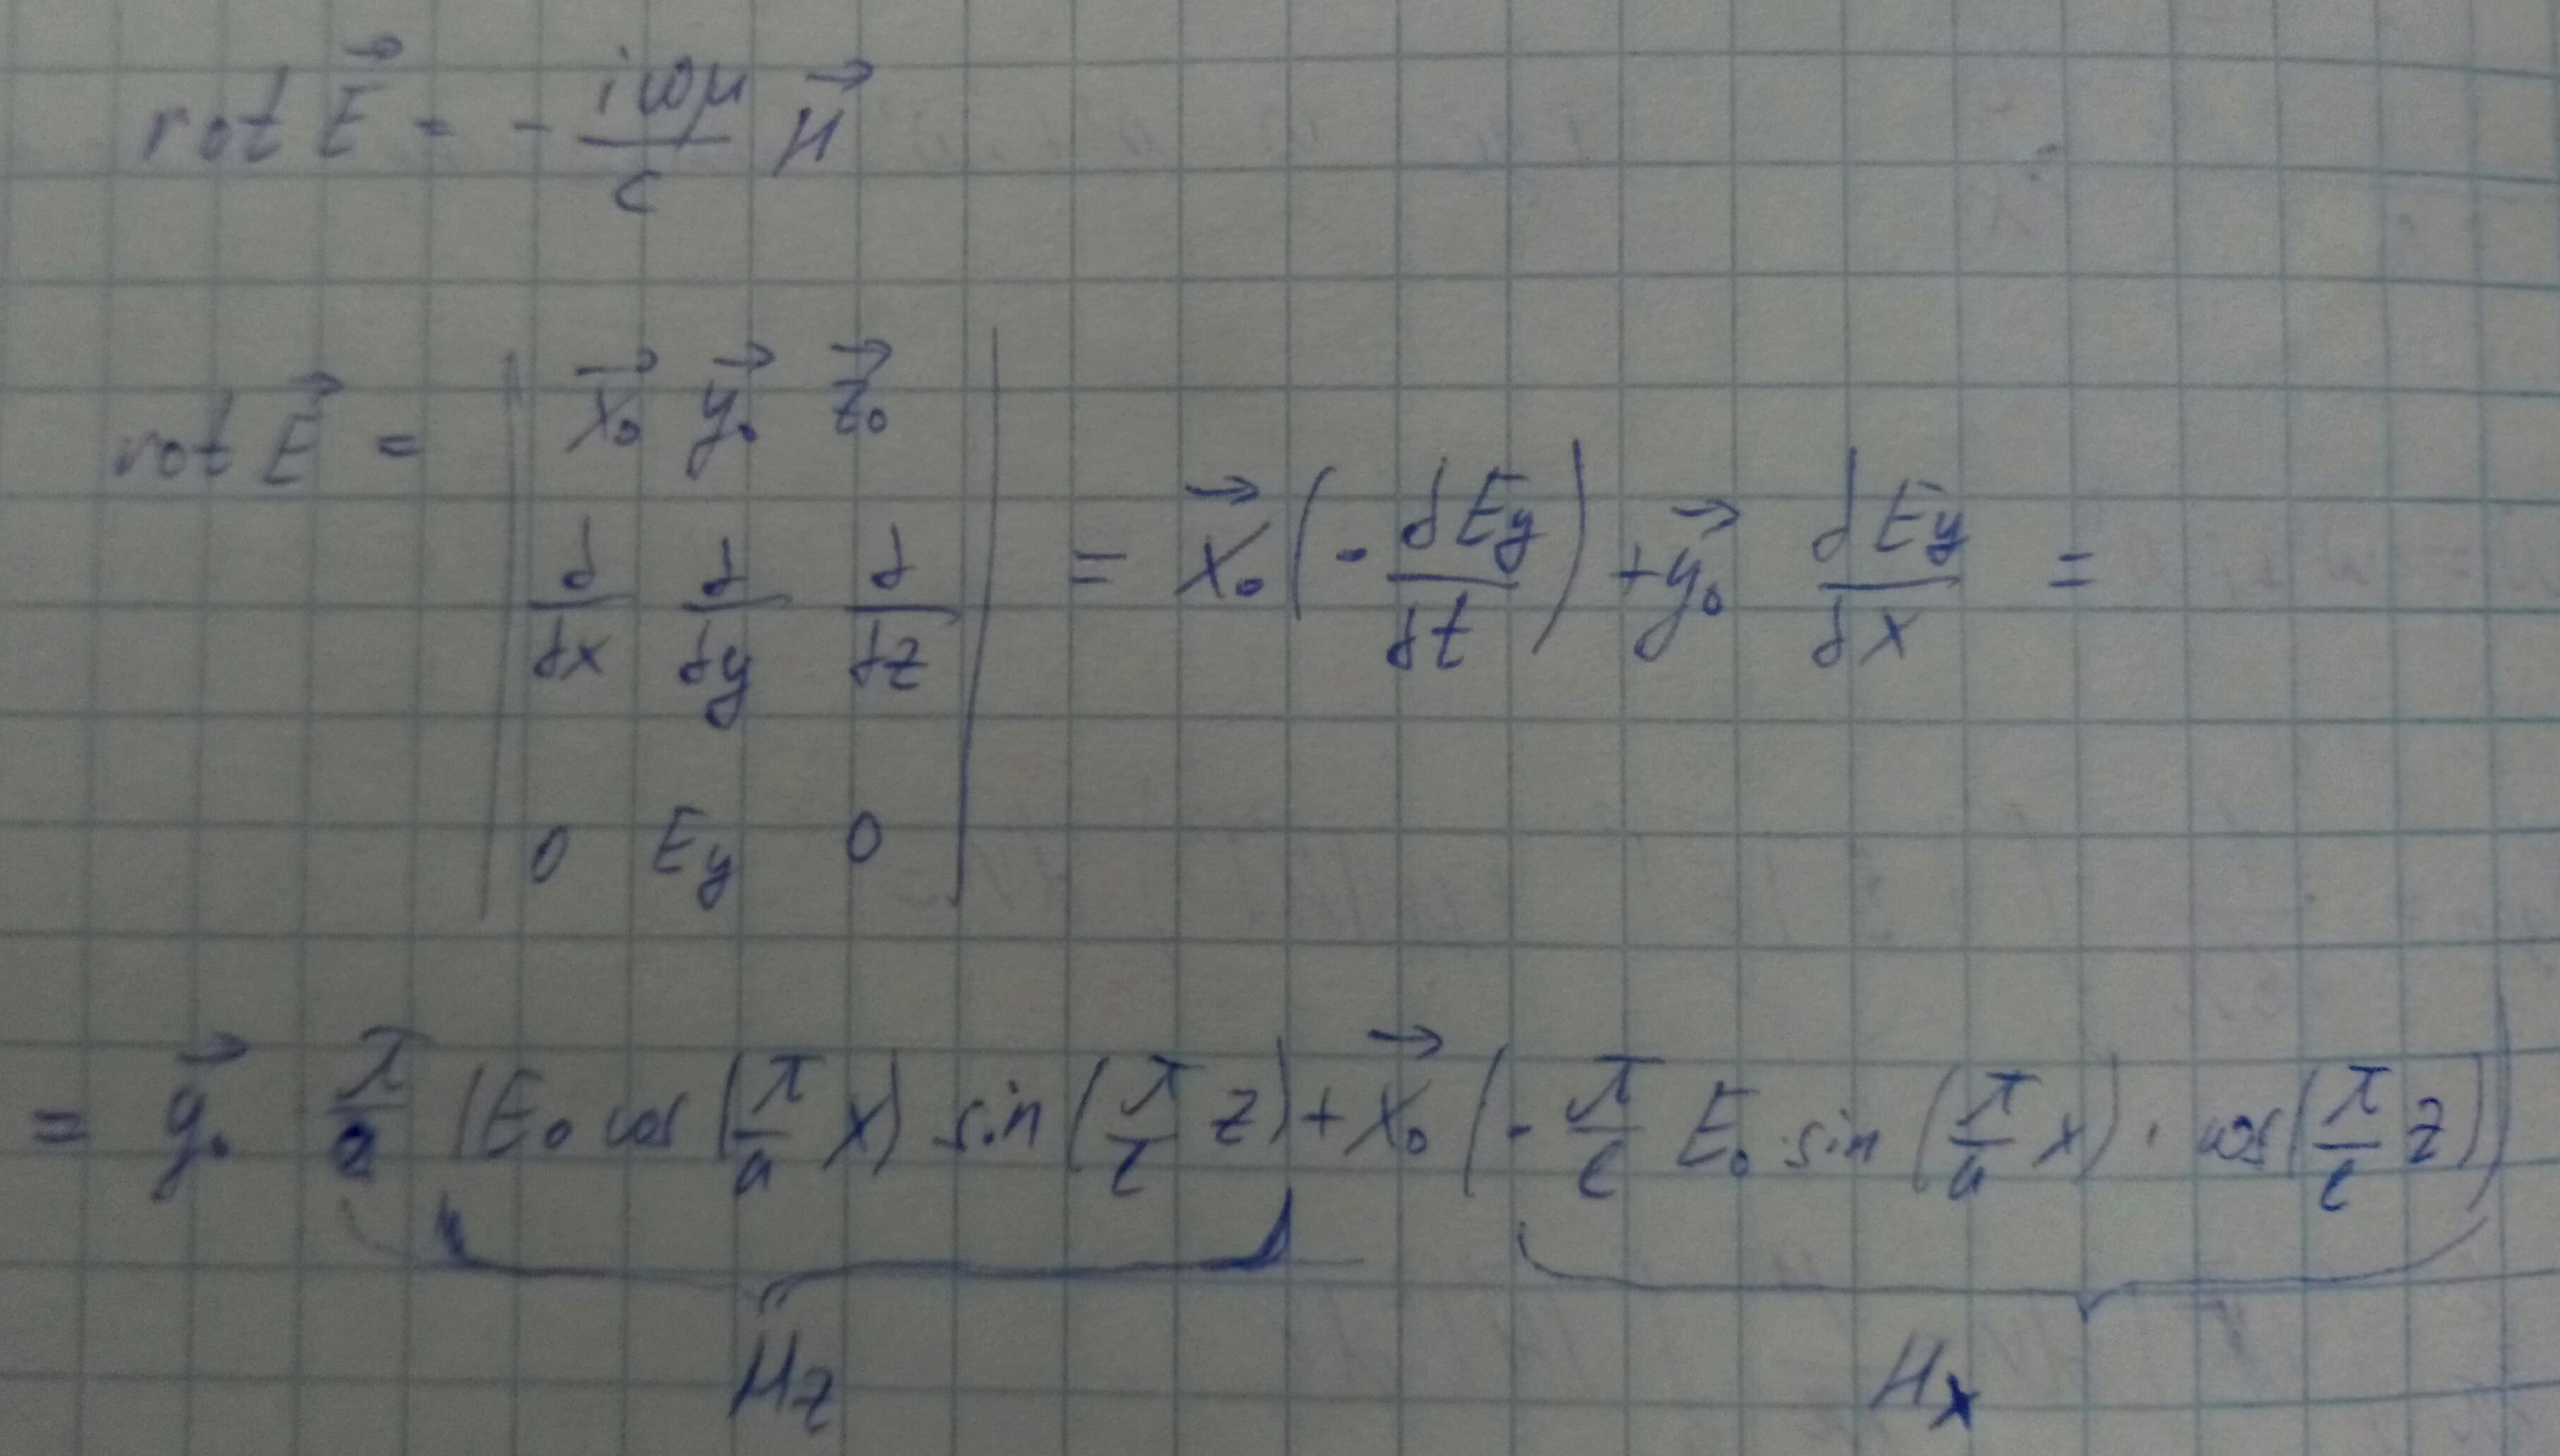 rot E⃗ = - iωμ/c H⃗
rot E⃗ = | x⃗₀ y⃗₀ z⃗₀ |
| d/dx d/dy d/dz | = x⃗₀ (- dEy/dt) + y⃗₀ dEy/dx =
| 0 Ey 0 |
= y⃗₀ π/a (E₀ cos(π/a x) sin(π/l z) + x⃗₀ (- π/l E₀ sin(π/a x) · cos(π/l z))
Hz Hx